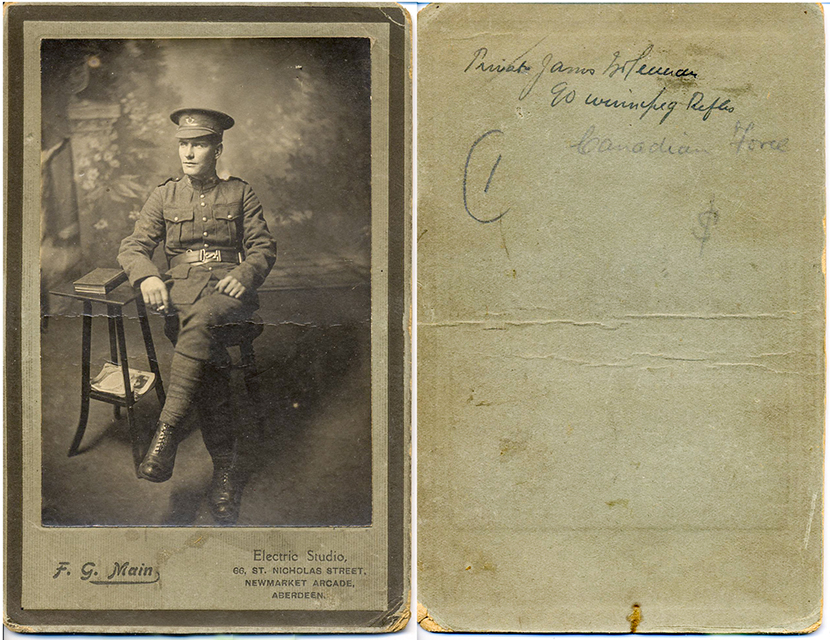 F. G. Main
Electric Studio,
66, ST. NICHOLAS STREET,
NEWMARKET ARCADE,
ABERDEEN.
Private James
90 Winnipeg Rifles
Canadian Force
(1